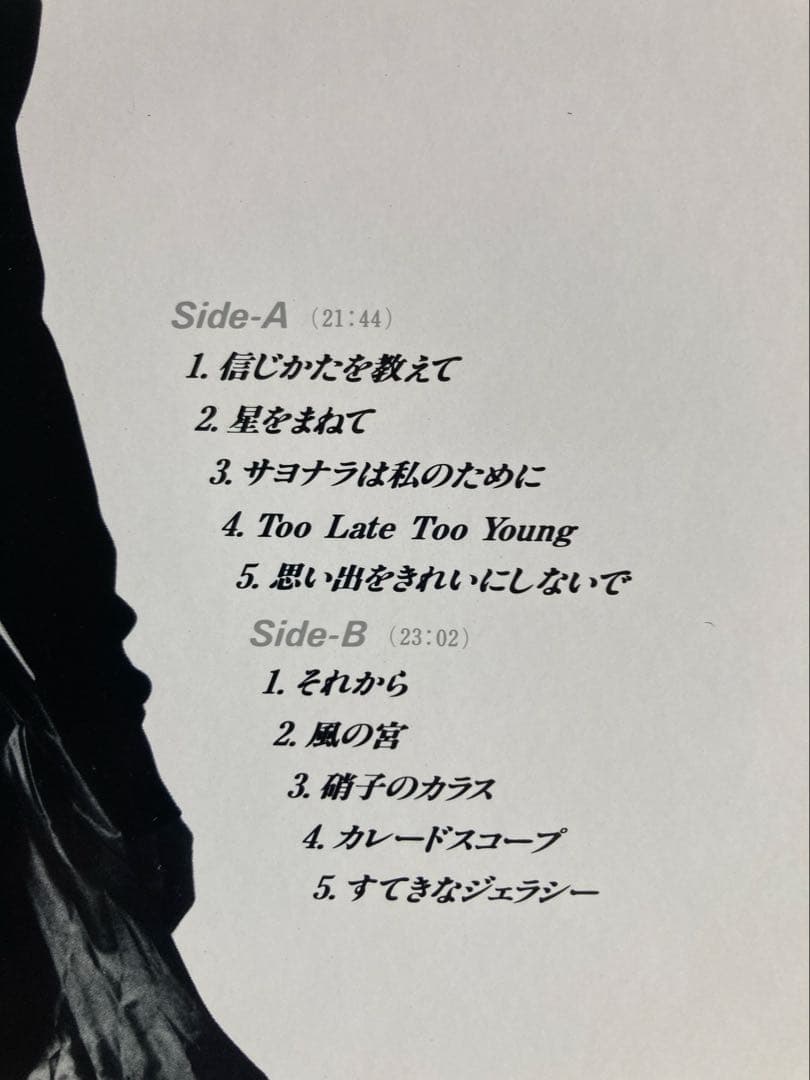 Side-A (21:44)
1. 信じかたを教えて
2. 星をまねて
3. サヨナラは私のために
4. Too Late Too Young
5. 思い出をきれいにしないで
Side-B (23:02)
1. それから
2. 風の宮
3. 硝子のカラス
4. カレードスコープ
5. すてきなジェラシー